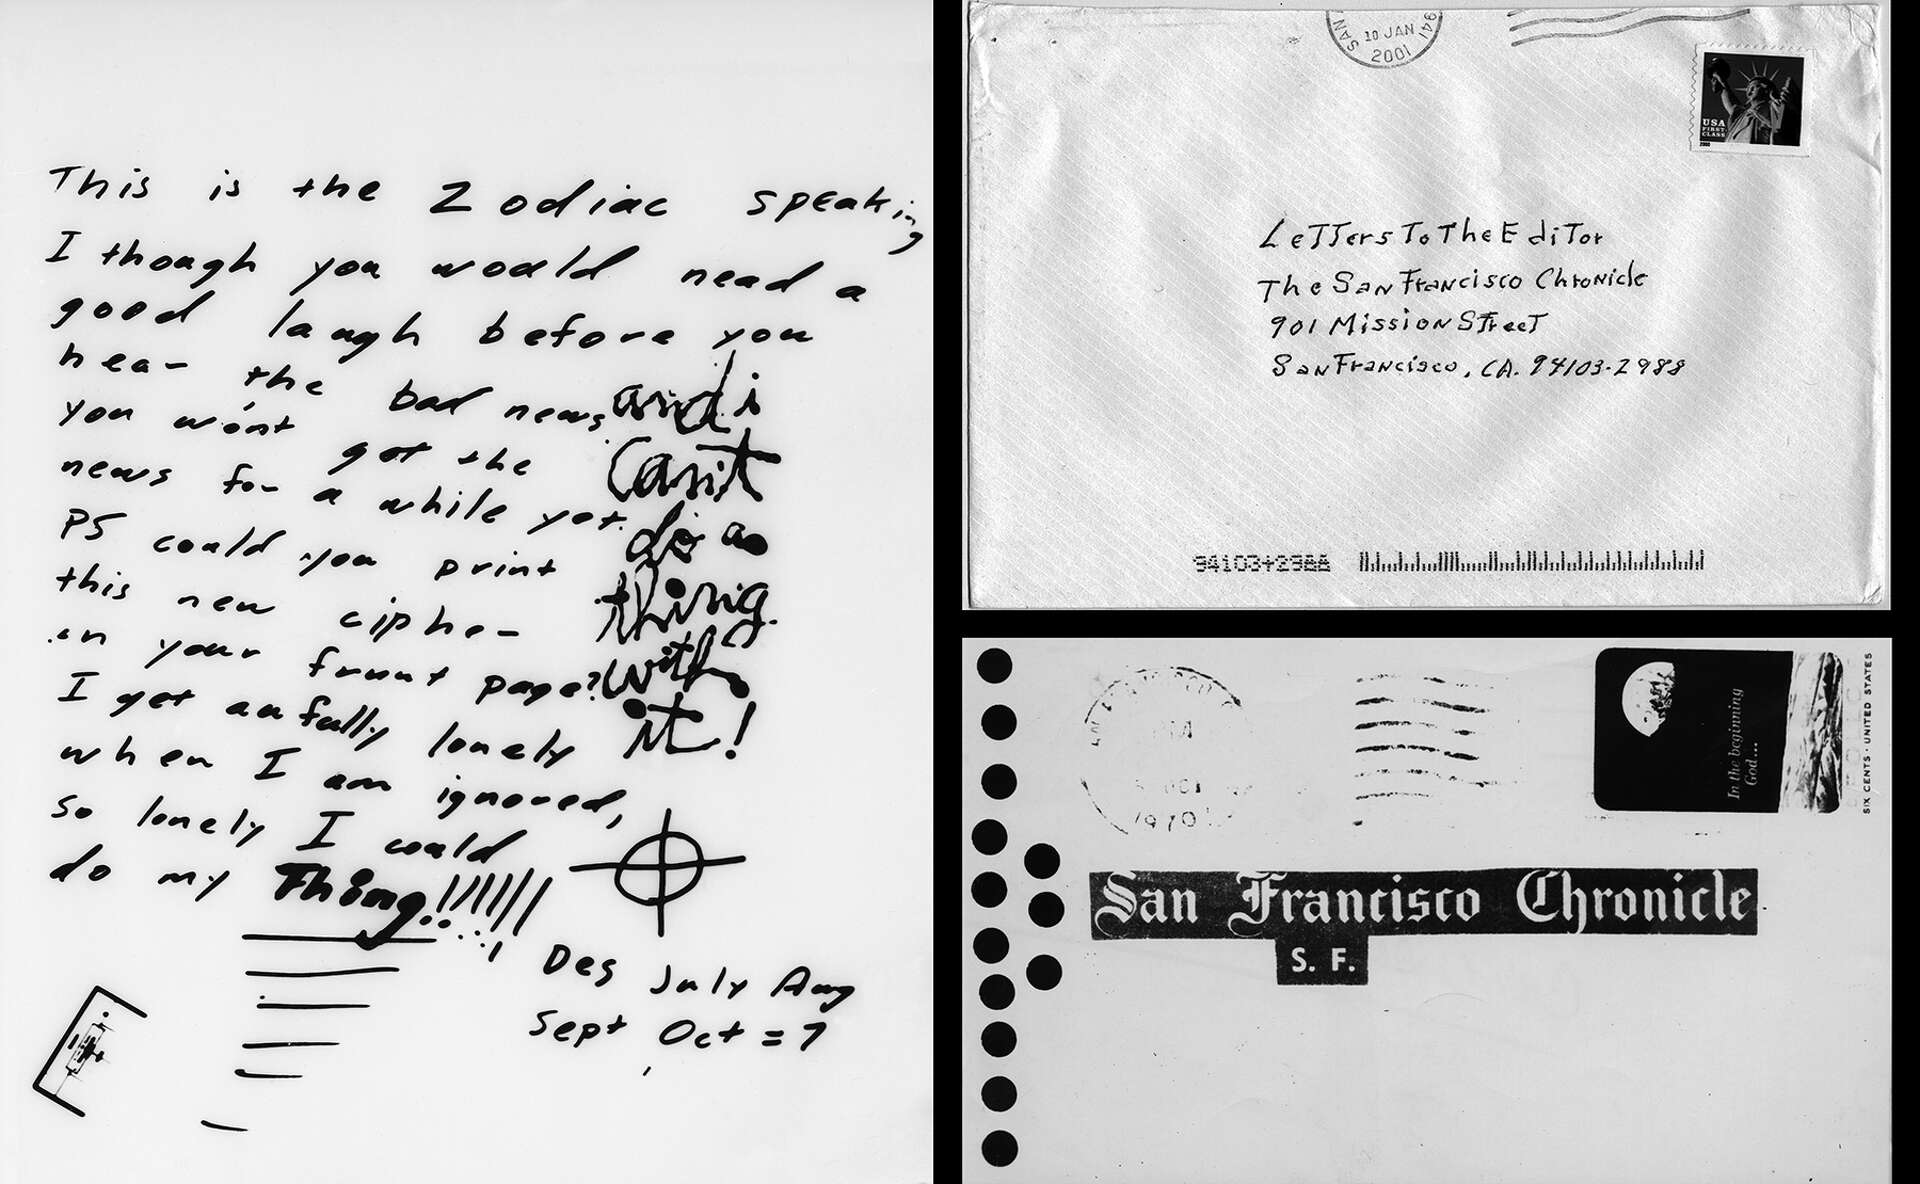 This is the Zodiac speaking
I though you would nead a
good laugh before you
hear the bad news
you won't get the
news for a while yet.
PS could you print
this new cipher
in your frunt page?
I get aufully lonely
when I am ignored,
so lonely I could
do my Thing!!!!!!
and i
can't
do a
thing
with
it!
Des July Aug
Sept Oct = 7
10 JAN
2001
USA
FIRST
CLASS
2000
Letters To The Editor
The San Francisco Chronicle
901 Mission Street
San Francisco, CA. 94103-2988
94103+2988
1970
In the beginning
God...
SIX CENTS · UNITED STATES
San Francisco Chronicle
S. F.